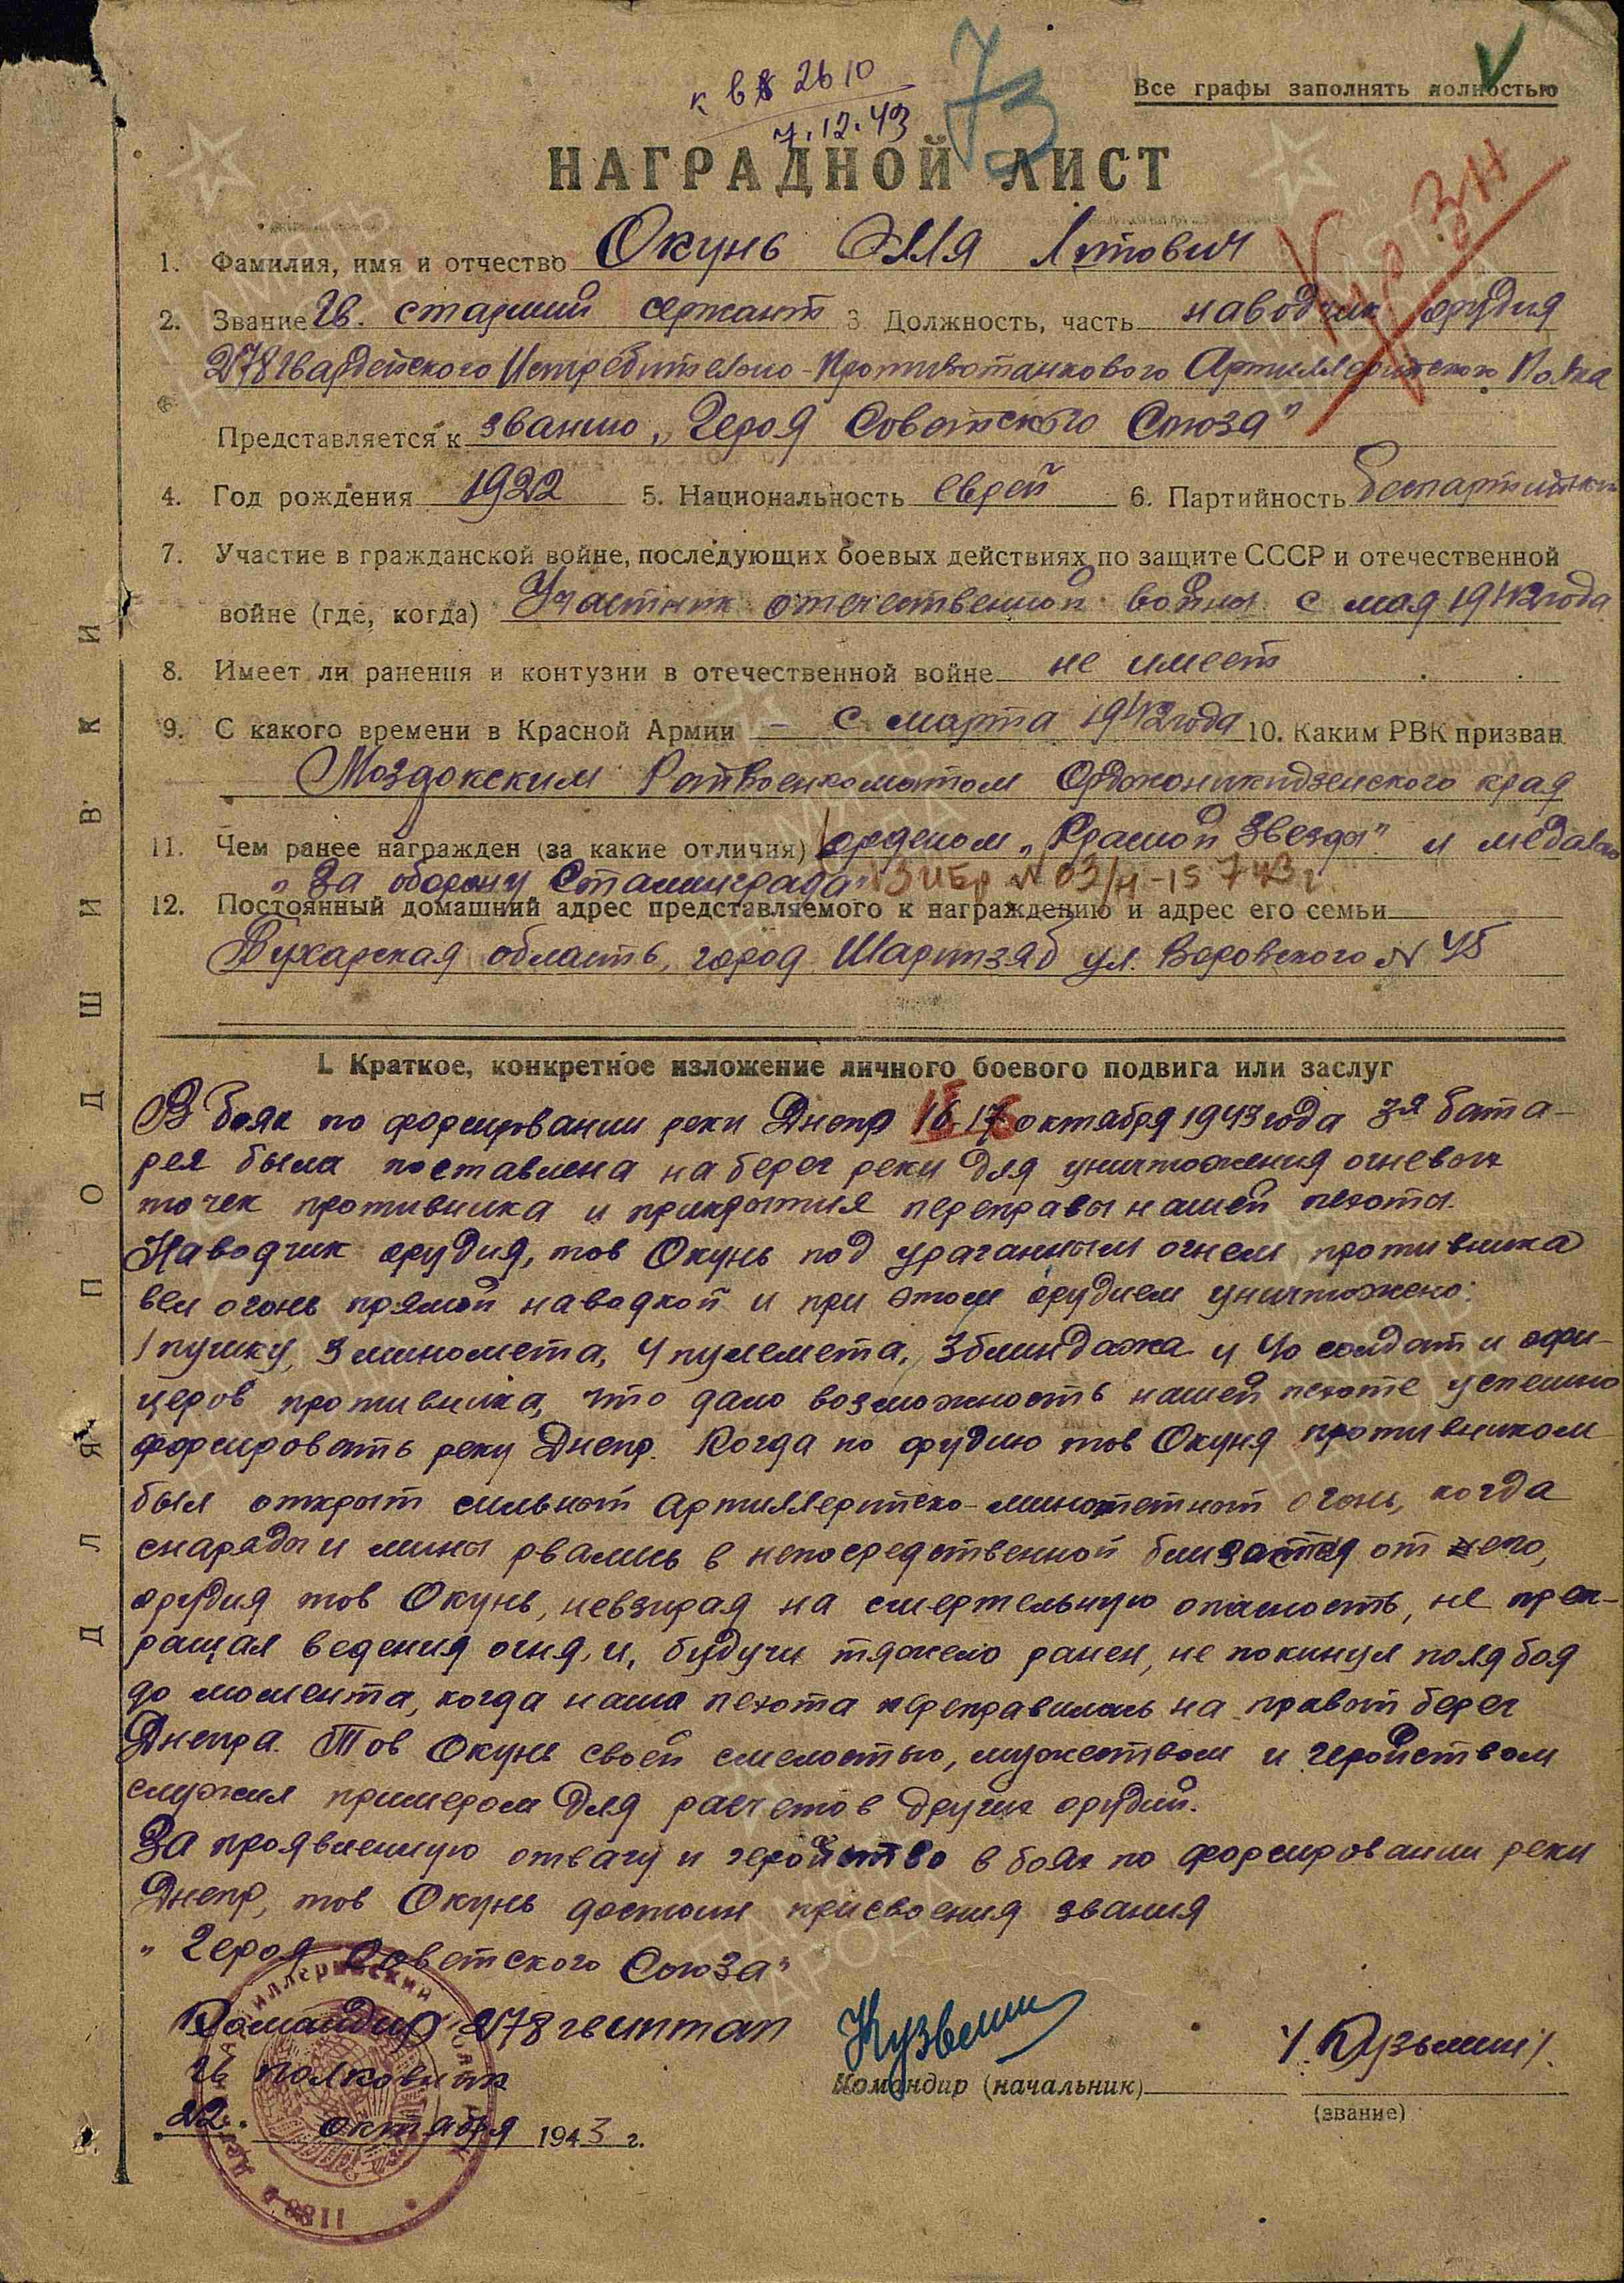 к вх 2610
7.12.43
73
Все графы заполнять полностью
НАГРАДНОЙ ЛИСТ
1. Фамилия, имя и отчество Окунь Эля Якович
2. Звание Гв. старший сержант 3. Должность, часть наводчик орудия
278 Гвардейского Истребительно-Противотанкового Артиллерийского Полка
Представляется к званию „Героя Советского Союза"
4. Год рождения 1922 5. Национальность еврей 6. Партийность беспартийный
7. Участие в гражданской войне, последующих боевых действиях по защите СССР и отечественной
войне (где, когда) Участник отечественной войны с мая 1942 года
8. Имеет ли ранения и контузии в отечественной войне не имеет
9. С какого времени в Красной Армии – с марта 1942 года 10. Каким РВК призван
Моздокским Райвоенкоматом Орджоникидзенского края
11. Чем ранее награжден (за какие отличия) орденом „Красной Звезды" и медаль
„За оборону Сталинграда"
12. Постоянный домашний адрес представляемого к награждению и адрес его семьи
Бухарская область, город Шаризяб ул. Воровского № 45
I. Краткое, конкретное изложение личного боевого подвига или заслуг
В боях по форсировании реки Днепр 16-17 октября 1943 года 3я бата-
рея была поставлена на берег реки для уничтожения огневых
точек противника и прикрытия переправы нашей пехоты.
Наводчик орудия, тов Окунь под ураганным огнем противника
вел огонь прямой наводкой и при этом орудием уничтожено:
1 пушку, 3 миномета, 4 пулемета, 3 блиндажа и 40 солдат и офи-
церов противника, что дало возможность нашей пехоте успешно
форсировать реку Днепр. Когда по орудию тов Окуня противником
был открыт сильный артиллерийско-минометный огонь, когда
снаряды и мины рвались в непосредственной близости от него,
орудия тов Окунь, невзирая на смертельную опасность, не прек-
ращал ведения огня, и, будучи тяжело ранен, не покинул поля боя
до момента, когда наша пехота переправилась на правый берег
Днепра. Тов Окунь своей смелостью, мужеством и геройством
служил примером для расчетов других орудий.
За проявленную отвагу и геройство в боях по форсировании реки
Днепр, тов Окунь достоин присвоения звания
„Героя Советского Союза"
Командир 278 гв иптап
гв полковник
Командир (начальник) /Кузьмин/.
(звание)
22. октября 1943 г.
ДЛЯ ПОДШИВКИ
ПАМЯТЬ НАРОДА